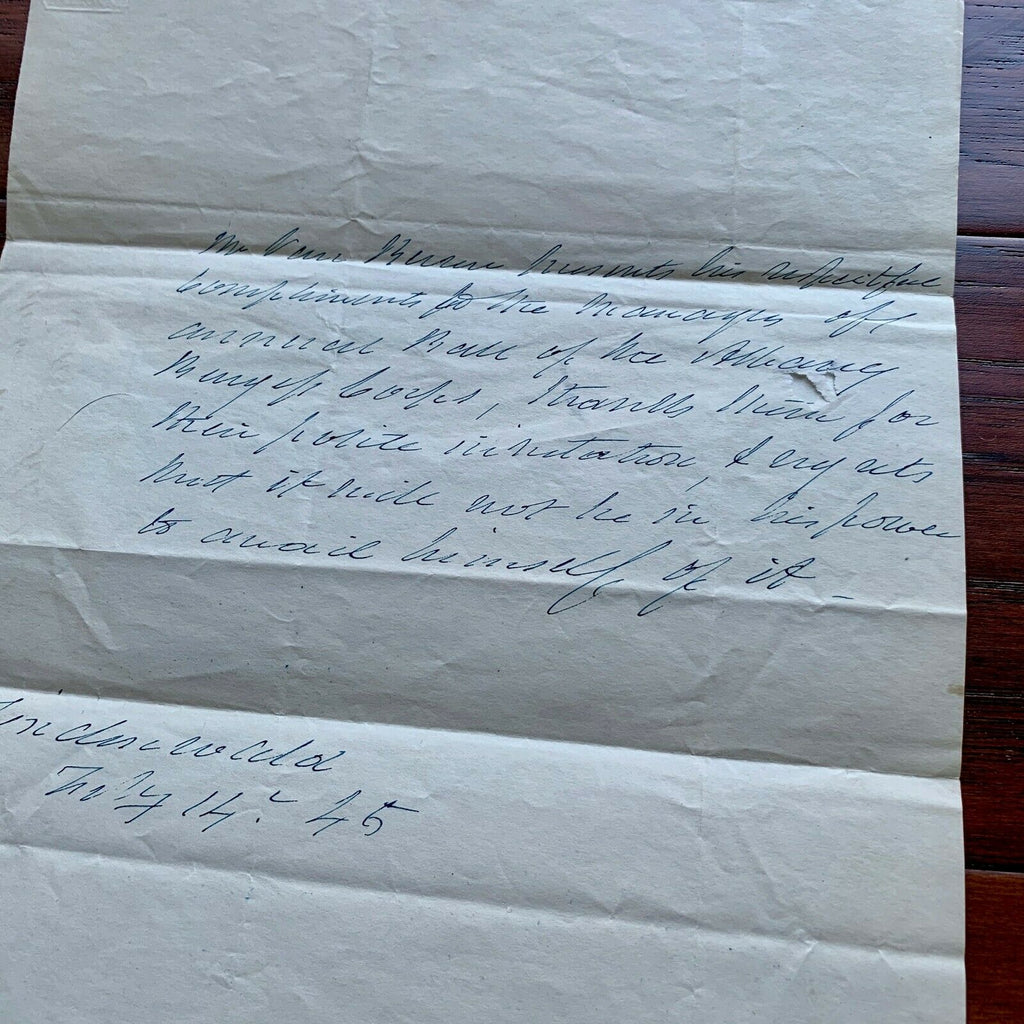 Mr Van Buren presents his respectful
compliments to the Managers of
annual Ball of the Albany
Burgess Corps, thanks them for
their polite invitation, & regrets
that it will not be in his power
to avail himself of it _
Lindenwald
14. 45